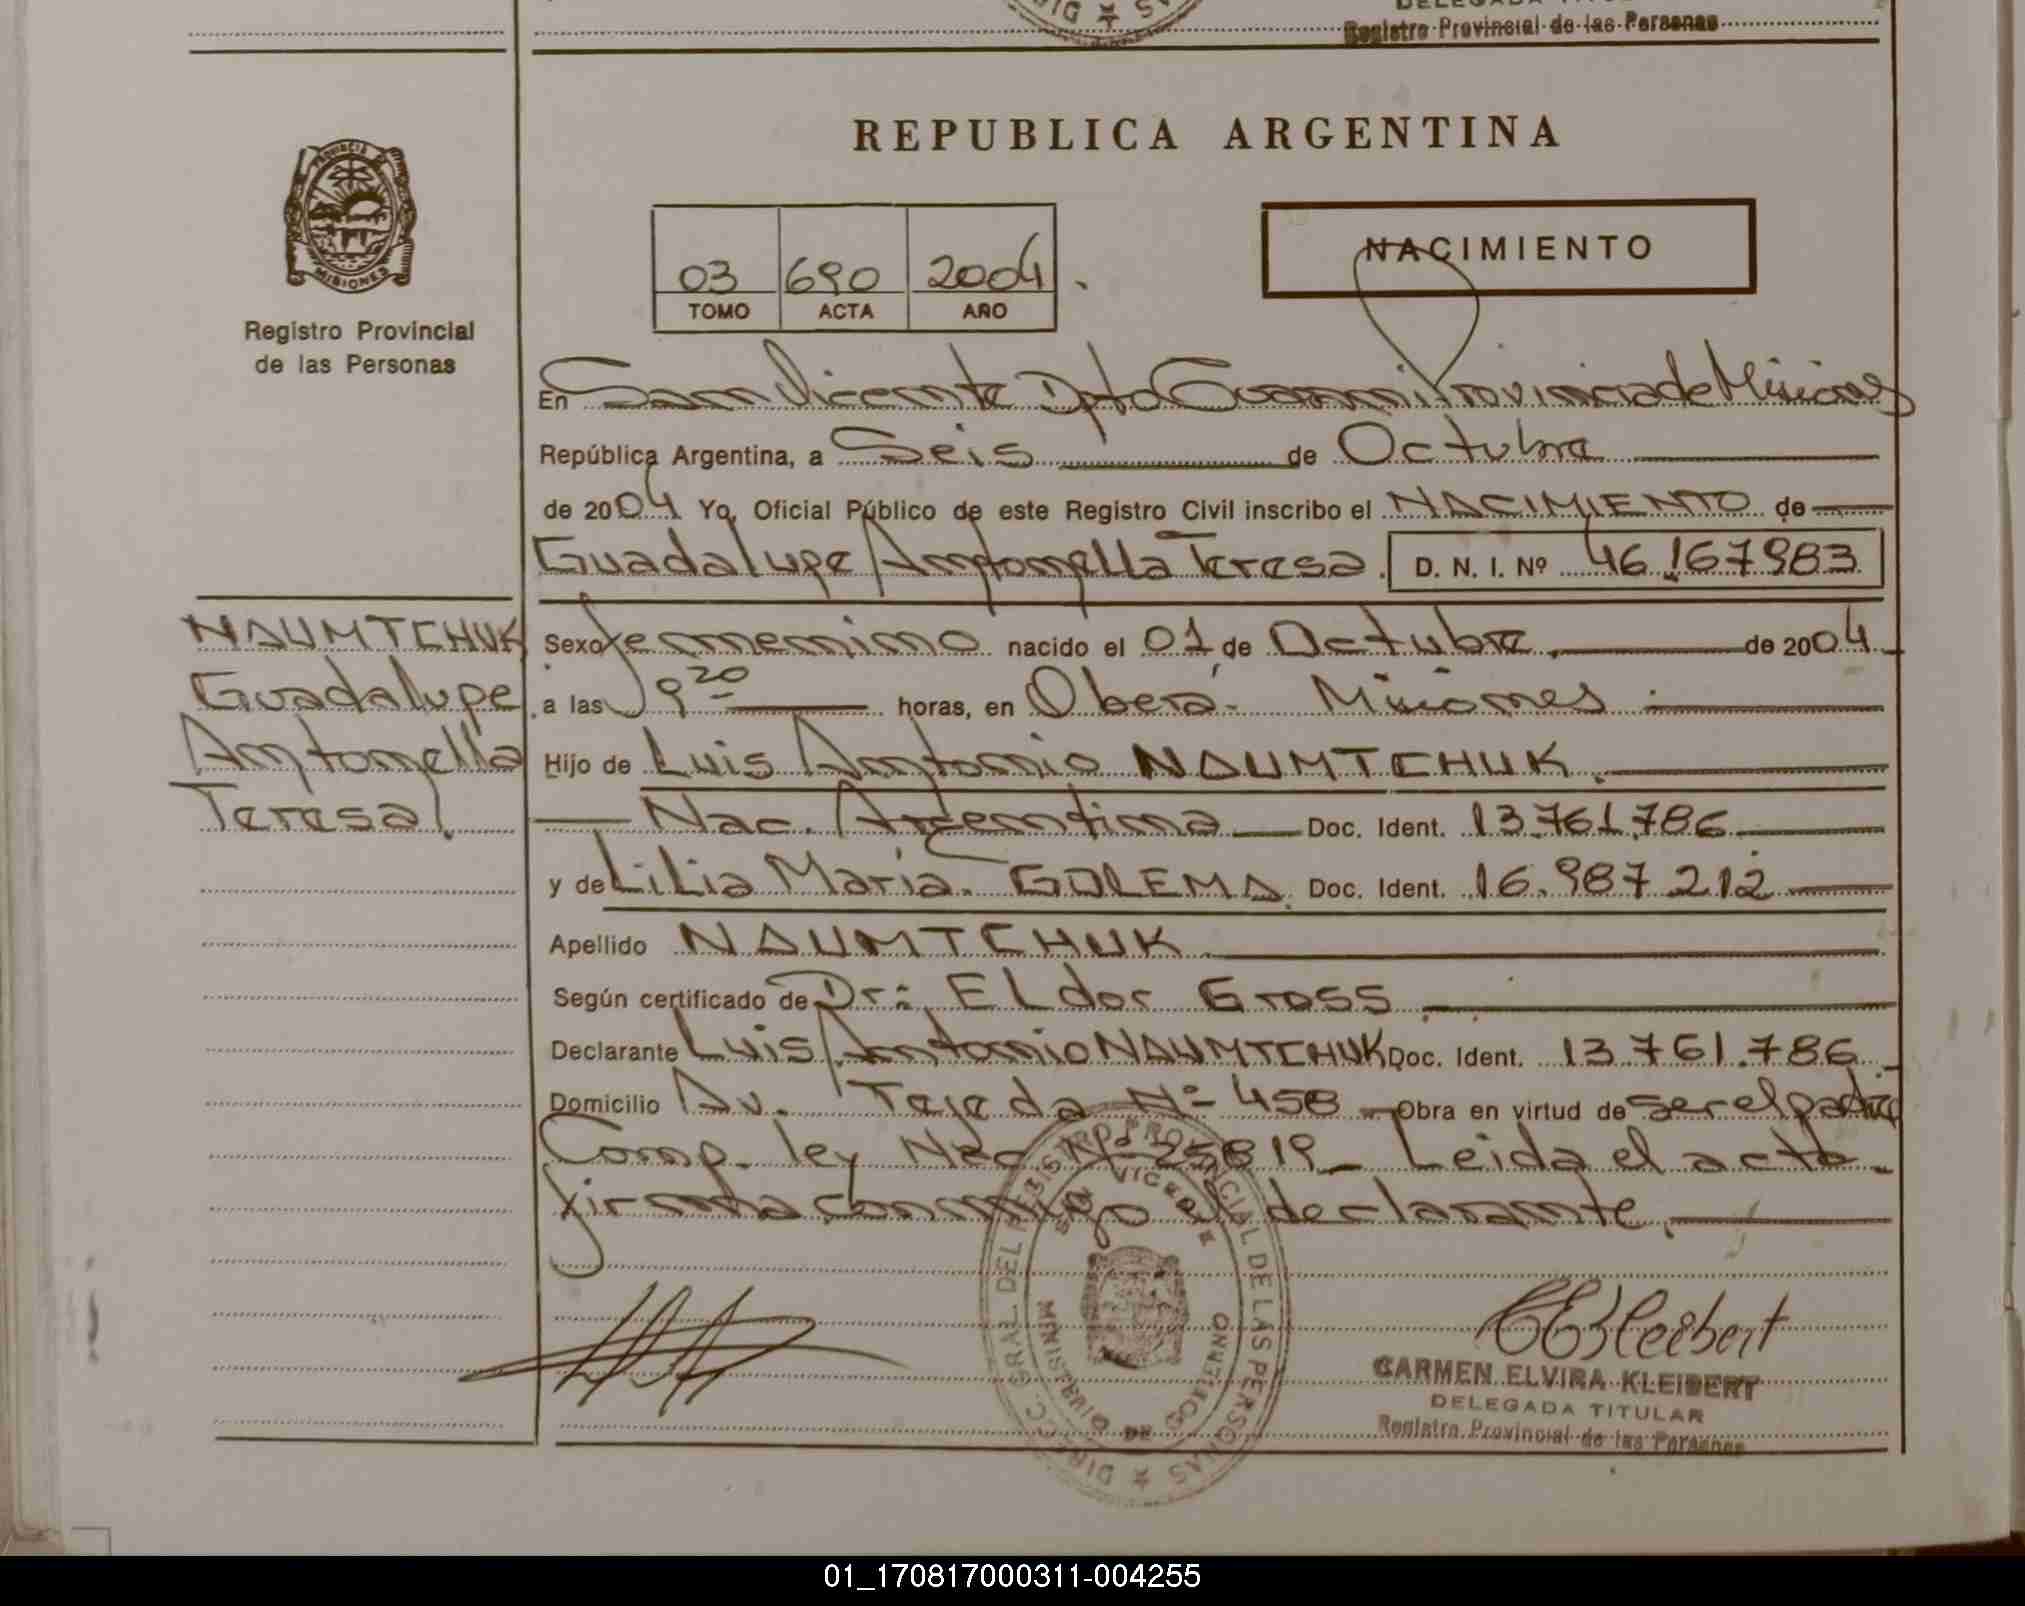 Registro Provincial de las Personas
REPUBLICA ARGENTINA
PROVINCIA DE
MISIONES
Registro Provincial
de las Personas
03 690 2004
TOMO ACTA AÑO
NACIMIENTO
En San Vicente Dpto Guarani Provincia de Misiones
República Argentina, a Seis de Octubre
de 2004 Yo, Oficial Público de este Registro Civil inscribo el NACIMIENTO de
Guadalupe Antonella Teresa. D. N. I. Nº 46.167983
NAUMTCHUK
Guadalupe
Antonella
Teresa
Sexo femenino nacido el 01 de Octubre de 2004
a las 9 20 horas, en Oberá - Misiones
Hijo de Luis Antonio NAUMTCHUK
Nac. Argentina Doc. Ident. 13.761.786
y de Lilia María GOLEMA Doc. Ident. 16.987.212
Apellido NAUMTCHUK
Según certificado de Dr: Eldor Gross
Declarante Luis Antonio NAUMTCHUK Doc. Ident. 13.761.786
Domicilio Av. Tejeda Nº 458 Obra en virtud de ser el padre
Comp. ley Nac Nº 25819 - Leida el acta
firma conmigo el declarante.
DIRECC. GRAL. DEL REGISTRO PROVINCIAL DE LAS PERSONAS
SAN VICENTE
MINISTERIO DE GOBIERNO
CEKleibert
CARMEN ELVIRA KLEIBERT
DELEGADA TITULAR
Registro Provincial de las Personas
01_170817000311-004255